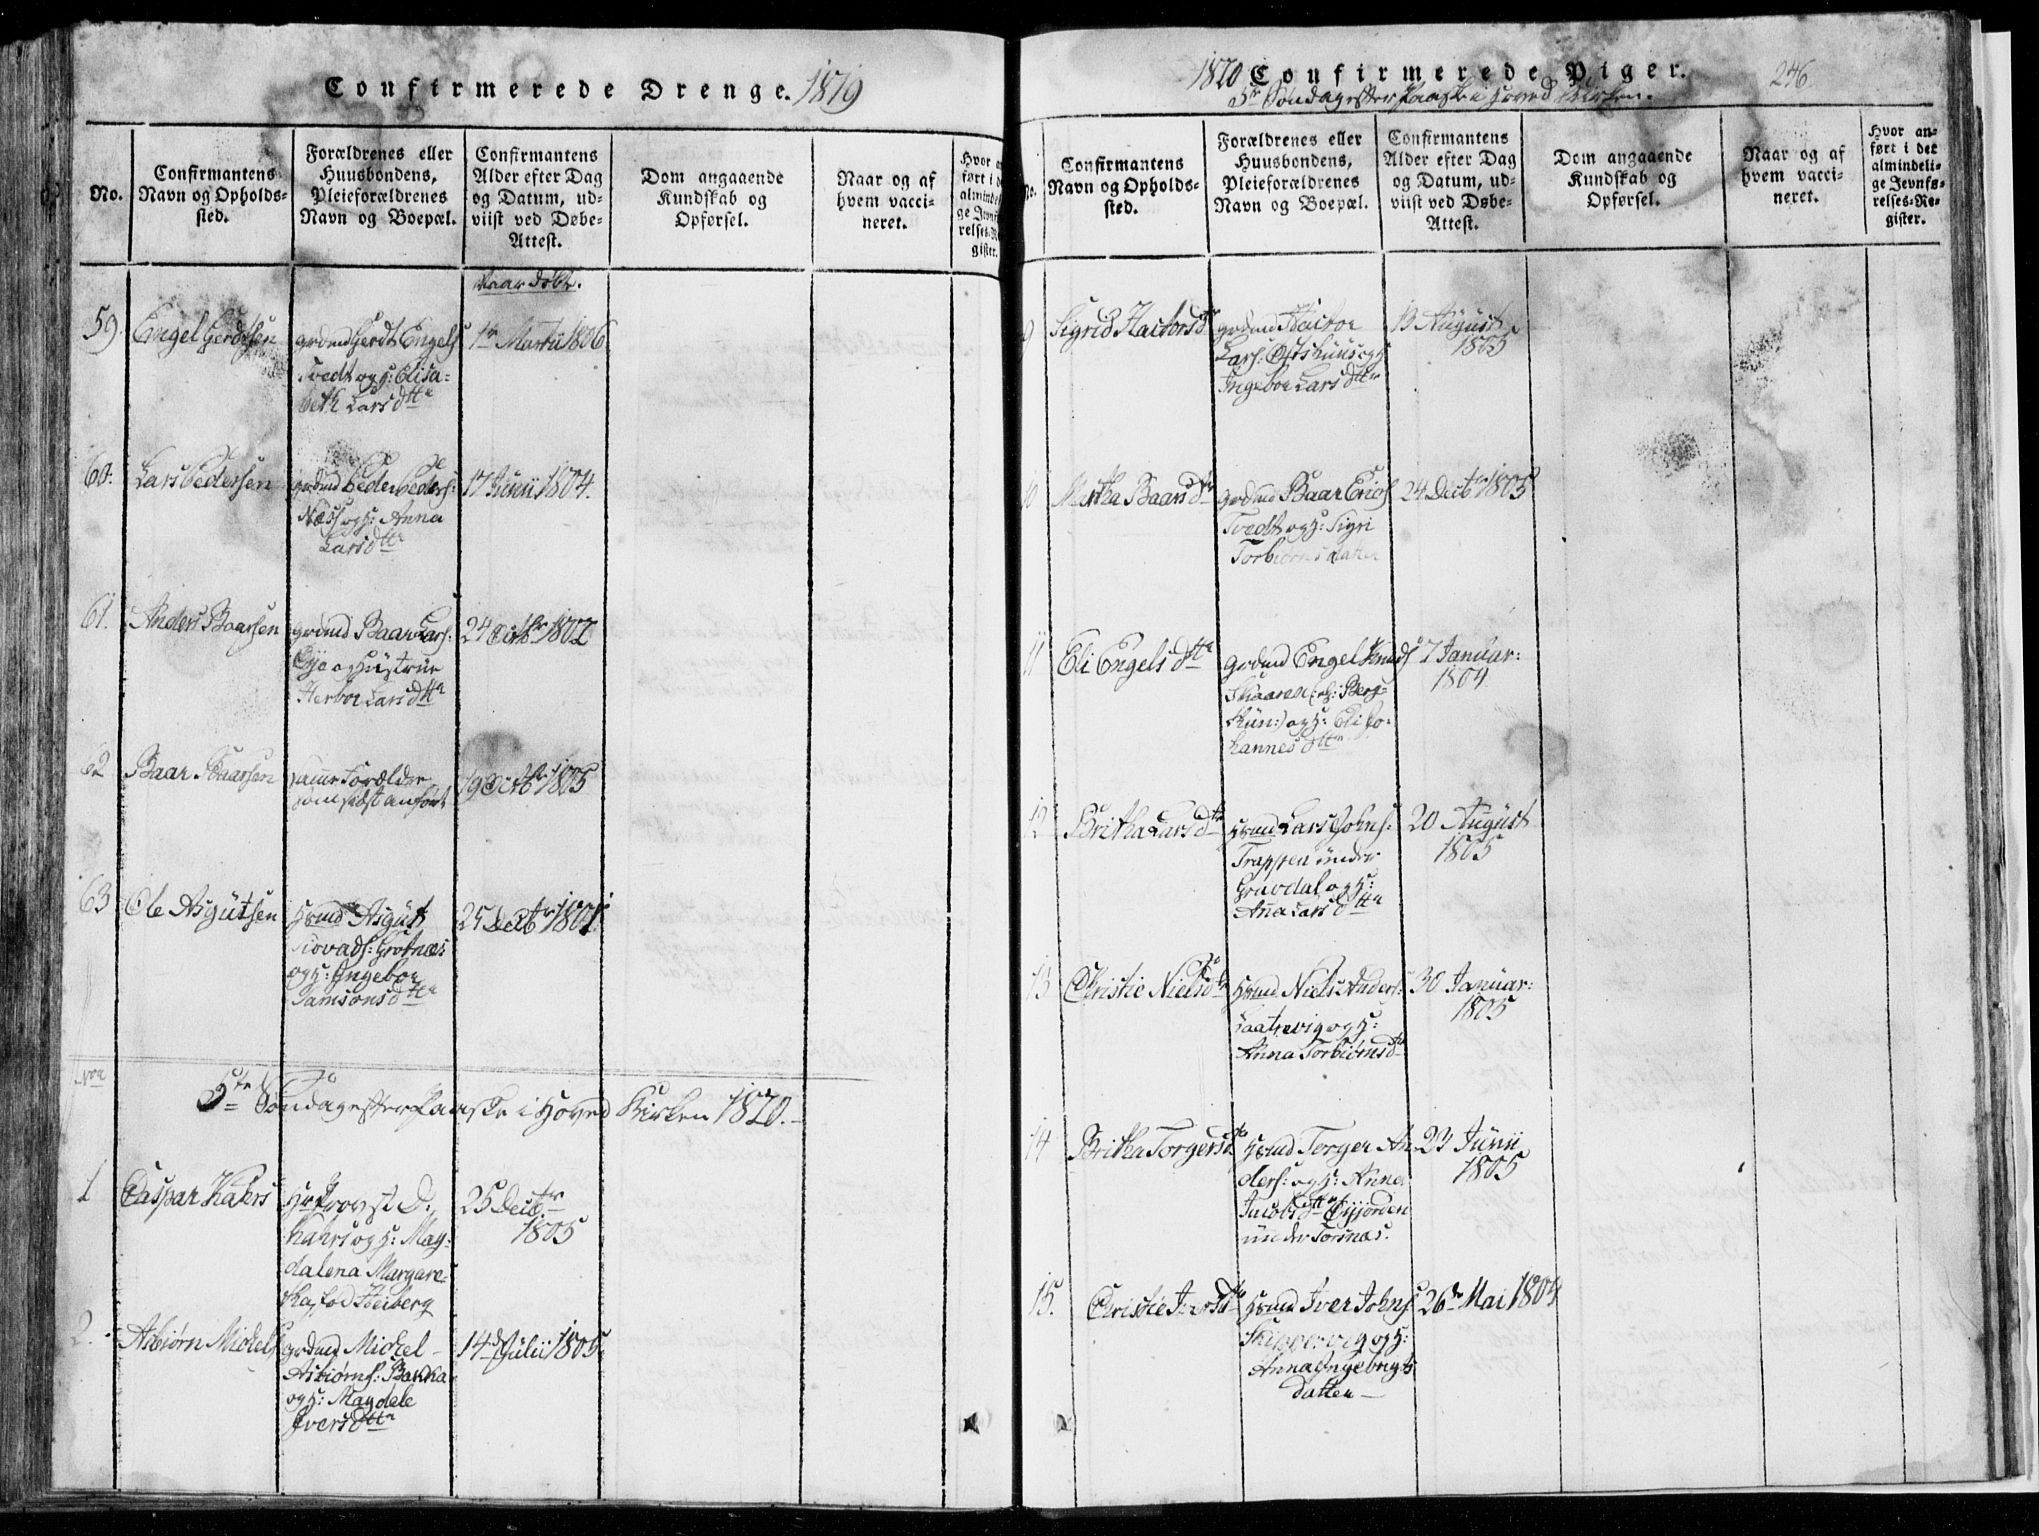 Confirmerede Drenge. 1819
No.
Confirmantens
Navn og Opholds-
sted.
Forældrenes eller
Huusbondens,
Pleieforældrenes
Navn og Boepæl.
Confirmantens
Alder efter Dag
og Datum, ud-
viist ved Døbe-
Attest.
Dom angaaende
Kundskab og
Opførsel.
Naar og af
hvem vacci-
neret.
Hvor
ført i
almindel
ge Jevnf
relses-R
gister.
Naar døbt.
59. Engel Gerdtsen
gudmd Gerdt Engels
Tvedt og H: Elisa-
beth Larsdttr
1te Martii 1806
60. Lars Pedersen
gudmd Peder Peders:
Næss og H: Anna
Larsdttr
17 Junii 1804.
61. Anders Baarsen
gudmd Baar Lars:
Øye og Hustrue
Herbor Larsdttr
24 Octbr 1802
62 Baar Baarsen
samme Forældre
som sidst anført
19 Octbr 1805
63 Ole Asgutsen
Hsmd Asgut
Siovads: Grotnæs
og H: Ingebor
Samsonsdttr
25 Decbr 1801
5te Søndag efter Paaske i Hoved Kirken 1820.
1 Caspar Kahrs
Hr Provst D.
Kahrs og H: Mag-
dalena Margare-
tha, fød Heiberg
25 Decbr
1805
2. Asbiørn Mickels
gudmd Mickel
Asbiørns: Bakka
og H: Magdele
Iversdttr
14de Julii 1805
1820 Confirmerede Piger. 246
5te Søndag efter Paaske i Hoved Kirken.
No.
Confirmantens
Navn og Opholds-
sted.
Forældrenes eller
Huusbondens,
Pleieforældrenes
Navn og Boepæl.
Confirmantens
Alder efter Dag
og Datum, ud-
viist ved Døbe-
Attest.
Dom angaaende
Kundskab og
Opførsel.
Naar og af
hvem vacci-
neret.
Hvor an-
ført i det
almindeli-
ge Jevnfø-
relses-Re-
gister.
9 Sigrid Hactorsdr
gudmd Hactor
Lars: Østshuus og H
Ingebor Larsdttr
13 August
1805
10 Martha Baarsdr
gudmd Baar Erics
Tvedt og H: Sigri
Torbiørnsdatter
24 Decbr 1805
11 Eli Engelsdttr
gudmd Engel Knuds
Skaaren (: Berg-
Hün:) og H: Eli Jo-
hannesdttr
7 Januar:
1804
12 Britha Larsdtr
Hsmd Lars Johns:
Trappen under
Gravdal og H:
Ana Larsdttr
20 August
1805
13 Christie Nielsdtr
Hsmd Niels Anders:
Laatrevig og H:
Anna Torbiørnsdtr
30 Januar:
1805
14 Britha Torgersdtr
Hsmd Torger An-
ders: og H: Anna
Jacobsdttr Øyjorden
under Torsnæs.
23 Junii
1805
15. Christie Iversdtr
Hsmd Iver Johns
Skippervig og H:
Anna Ingebrigts
datter
26de Mai 1804